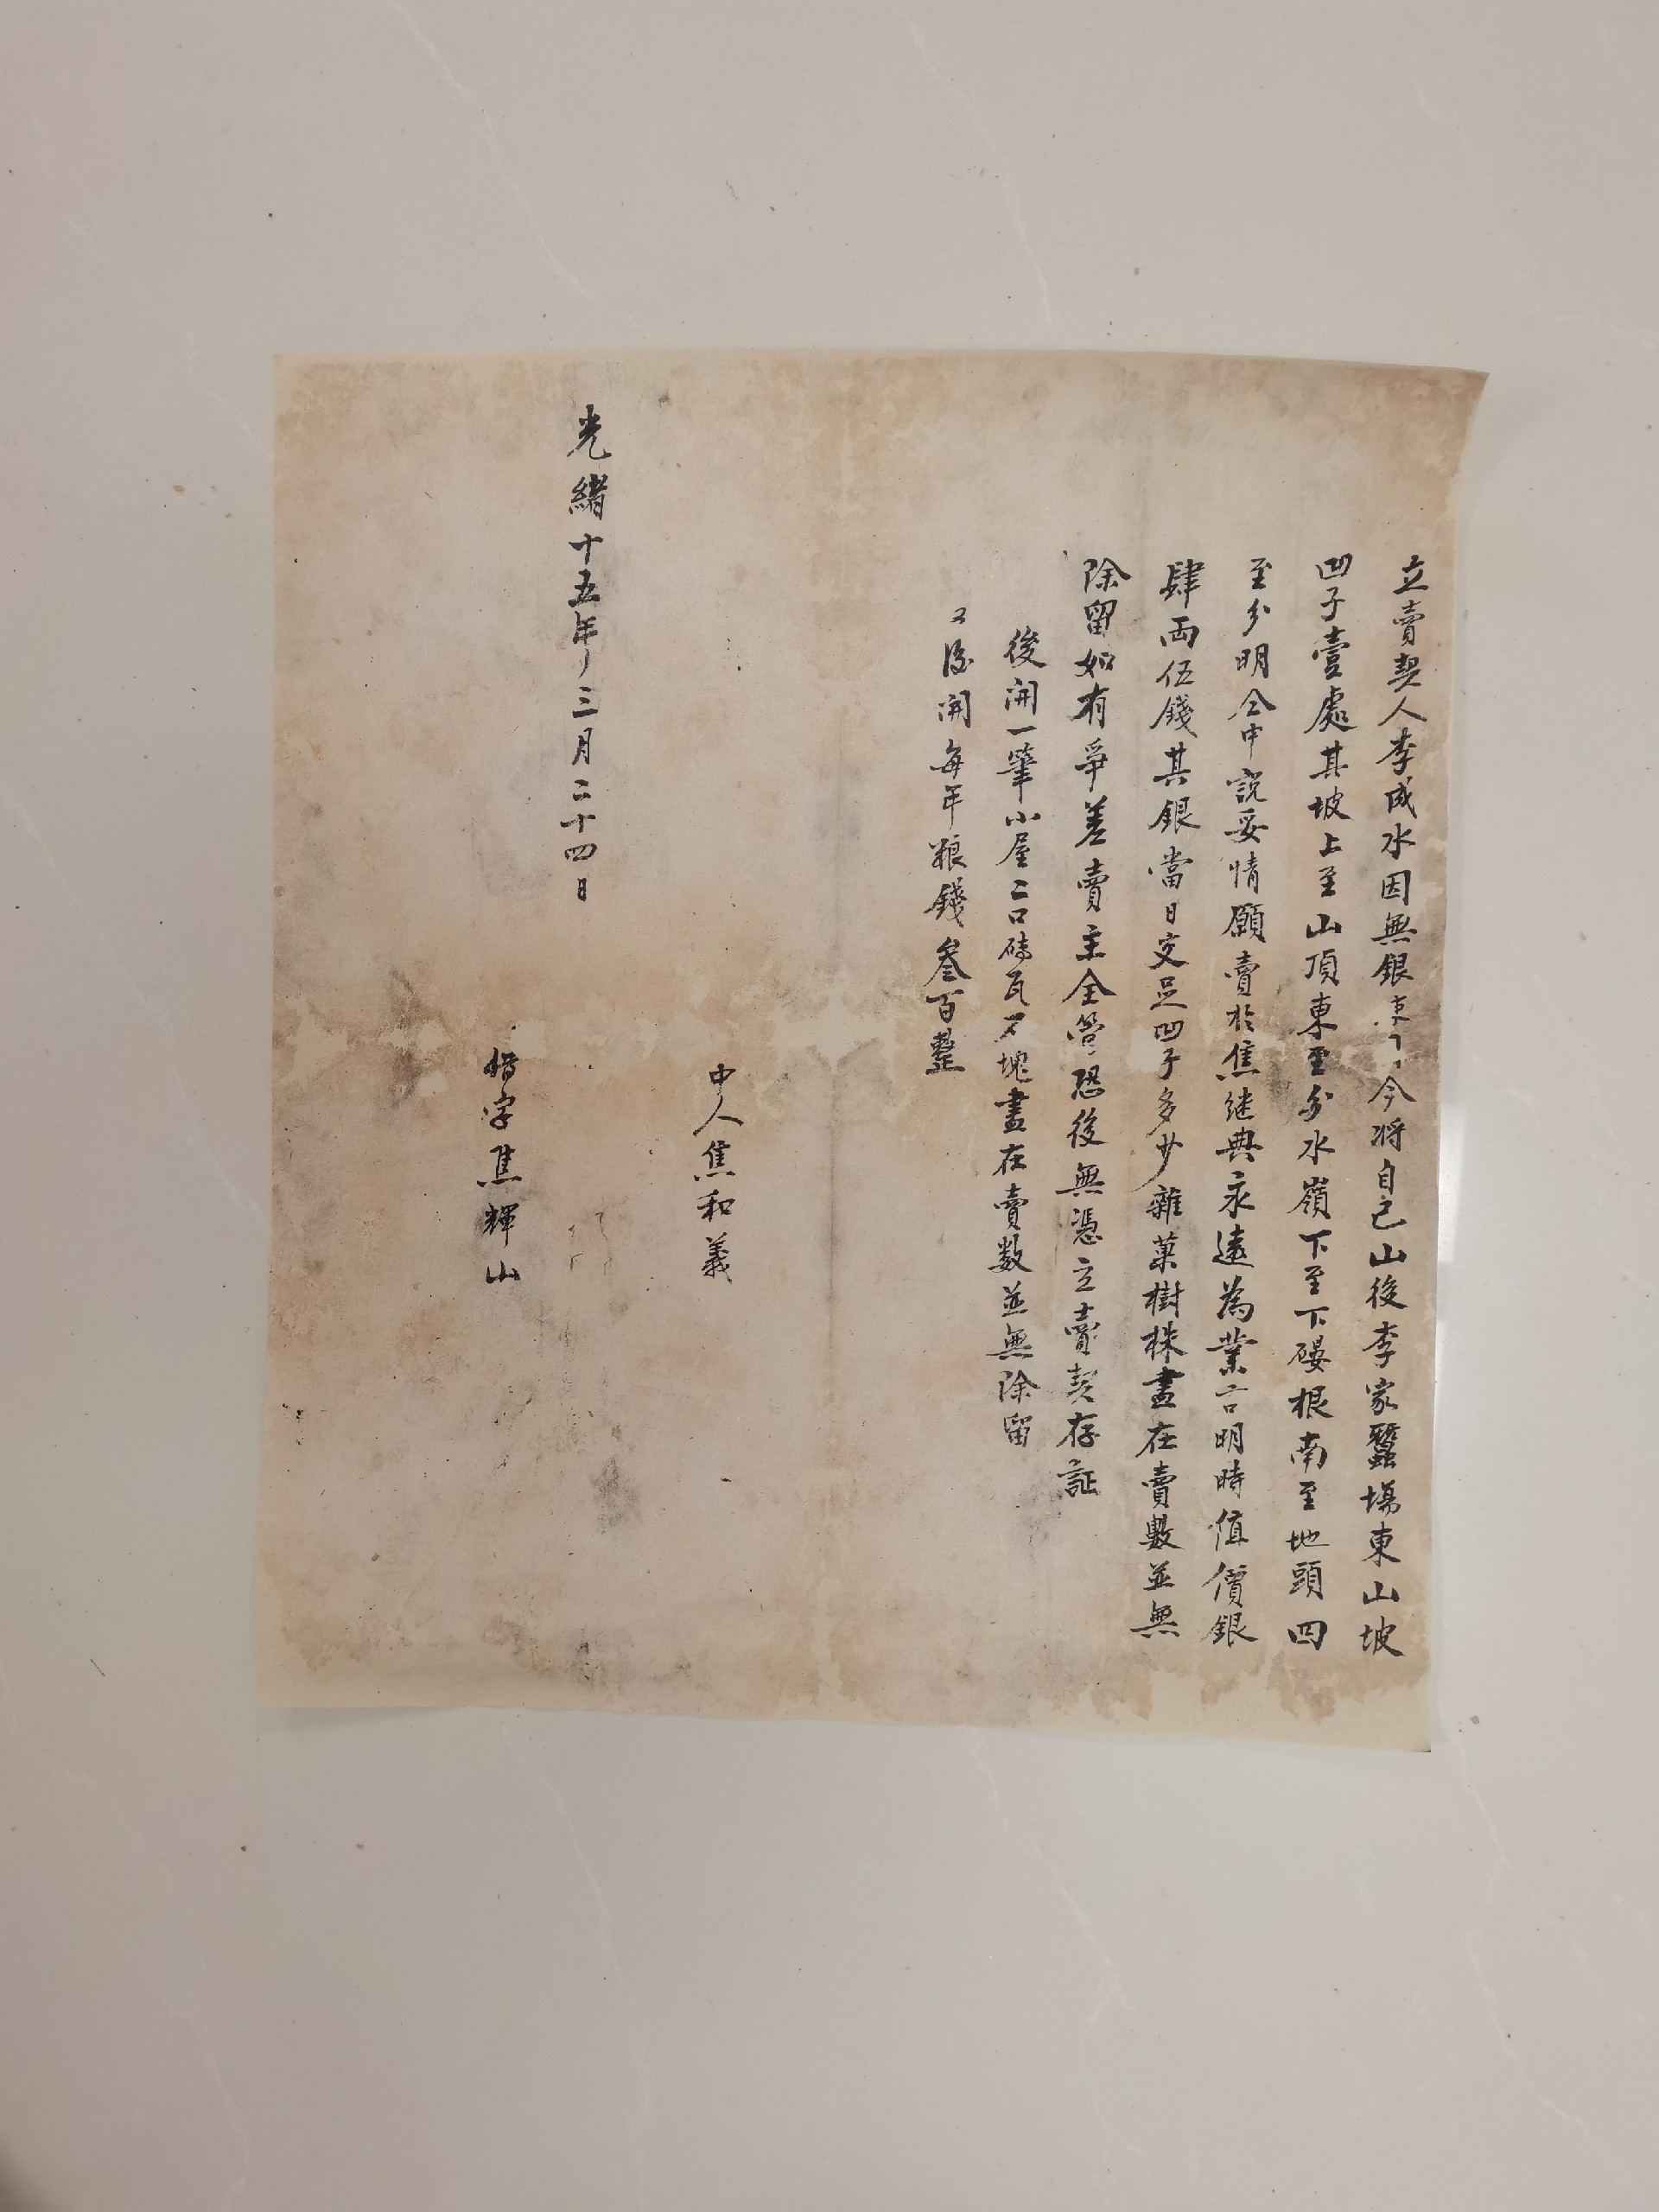 立賣契人李成水因無銀今将自己山後李家蠶塲東山坡
凹子壹處其坡上至山頂東至分水嶺下至下磗根南至地頭四
至分明仝中説妥情願賣於焦継典永遠為業言明時值價銀
肆両伍錢其銀當日交足凹子多少雜菓樹株盡在賣數並無
除留如有爭差賣主全管恐後無憑立賣契存証
後開一筆小屋二口砖瓦石塊盡在賣数並無除留
又後開每年粮錢叁百整
中人焦和義
光緒十五年三月二十四日
借字焦輝山